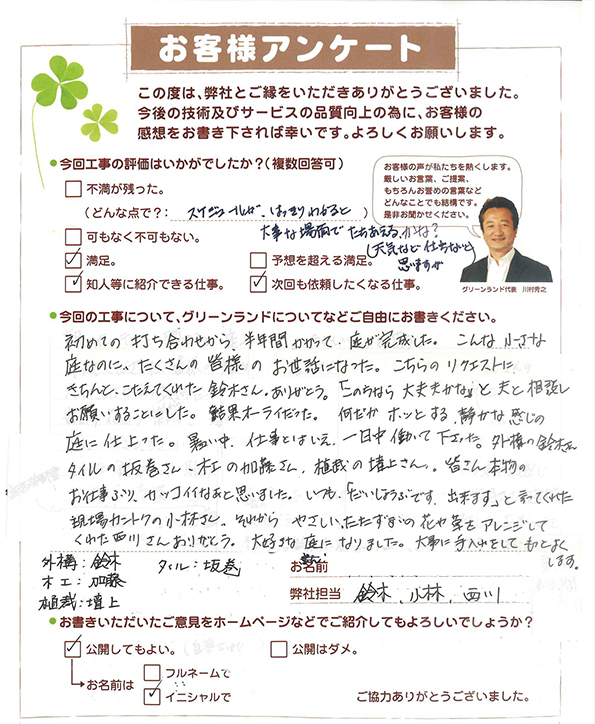 お客様アンケート
この度は、弊社とご縁をいただきありがとうございました。
今後の技術及びサービスの品質向上の為に、お客様の
感想をお書き下されば幸いです。よろしくお願いします。
●今回工事の評価はいかがでしたか?(複数回答可)
不満が残った。
(どんな点で?: スケジュールが、はっきりわかると
大事な場面でたちあえるかな?
(天気など仕方ないと
思いますが
可もなく不可もない。
満足。
予想を超える満足。
知人等に紹介できる仕事。
次回も依頼したくなる仕事。
お客様の声が私たちを熱くします。
厳しいお言葉、ご提案、
もちろんお誉めの言葉など
どんなことでも結構です。
是非お聞かせください。
グリーンランド代表 川村秀之
●今回の工事について、グリーンランドについてなどご自由にお書きください。
初めての打ち合わせから、半年間かかって、庭が完成した。こんな小さな
庭なのに、たくさんの皆様のお世話になった。こちらのリクエストに
きちんと、こたえてくれた鈴木さん。ありがとう。「このちなら大丈夫かな」と夫と相談し
お願いすることにした。結果オーライだった。何だかホッとする、静かな感じの
庭に仕上った。暑い中、仕事とはいえ、一日中働いて下さった。外構の鈴木さん
タイルの坂巻さん、木工の加藤さん、植栽の墳上さん。皆さん本物の
お仕事ぶり、カッコイイなあと思いました。いつも、「だいじょうぶです、出来ます」と言ってくれた
現場カントクの小林さん、それから やさしいたたずまいの花や草をアレンジして
くれた西川さんありがとう。大好きな庭になりました。大事に手入れをしてもっとよく
します。
外構:鈴木
タイル:坂巻
木工:加藤
植栽:墳上
お名前
弊社担当 鈴木、小林、西川
●お書きいただいたご意見をホームページなどでご紹介してもよろしいでしょうか?
公開してもよい。
公開はダメ。
お名前は
フルネームで
イニシャルで
ご協力ありがとうございました。